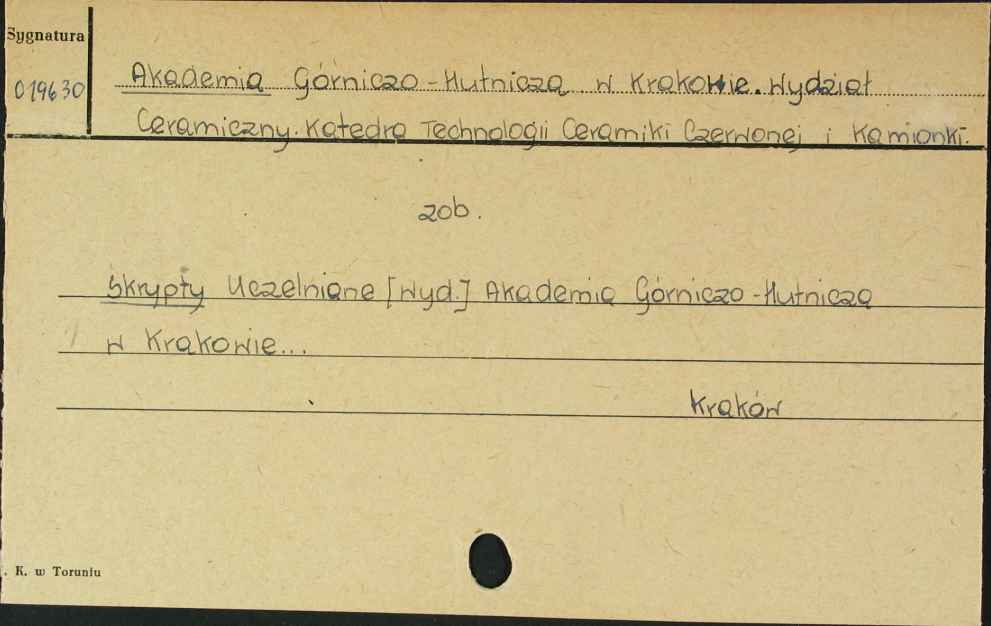 Sygnatura
019630
Akademia Górniczo-Hutnicza w Krakowie. Wydział
Ceramiczny. Katedra Technologii Ceramiki Czerwonej i Kamionki.
zob.
Skrypty Uczelniane [Wyd.] Akademia Górniczo-Hutnicza
w Krakowie...
Kraków
. K. w Toruniu